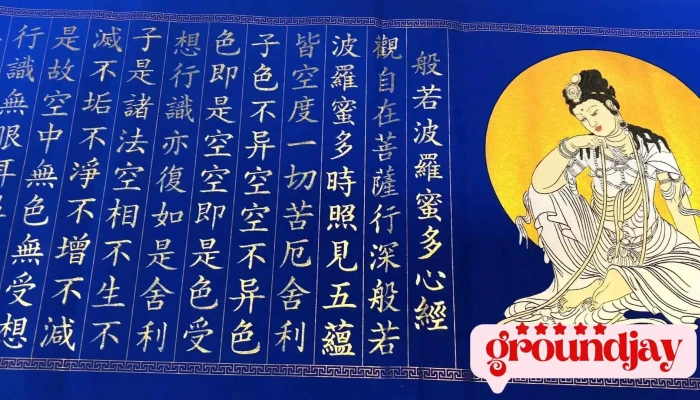 般若波羅蜜多心經
觀自在菩薩行深般若
波羅蜜多時照見五蘊
皆空度一切苦厄舍利
子色不异空空不异色
色即是空空即是色受
想行識亦復如是舍利
子是諸法空相不生不
滅不垢不淨不增不減
是故空中無色無受想
行識無眼耳
groundjay